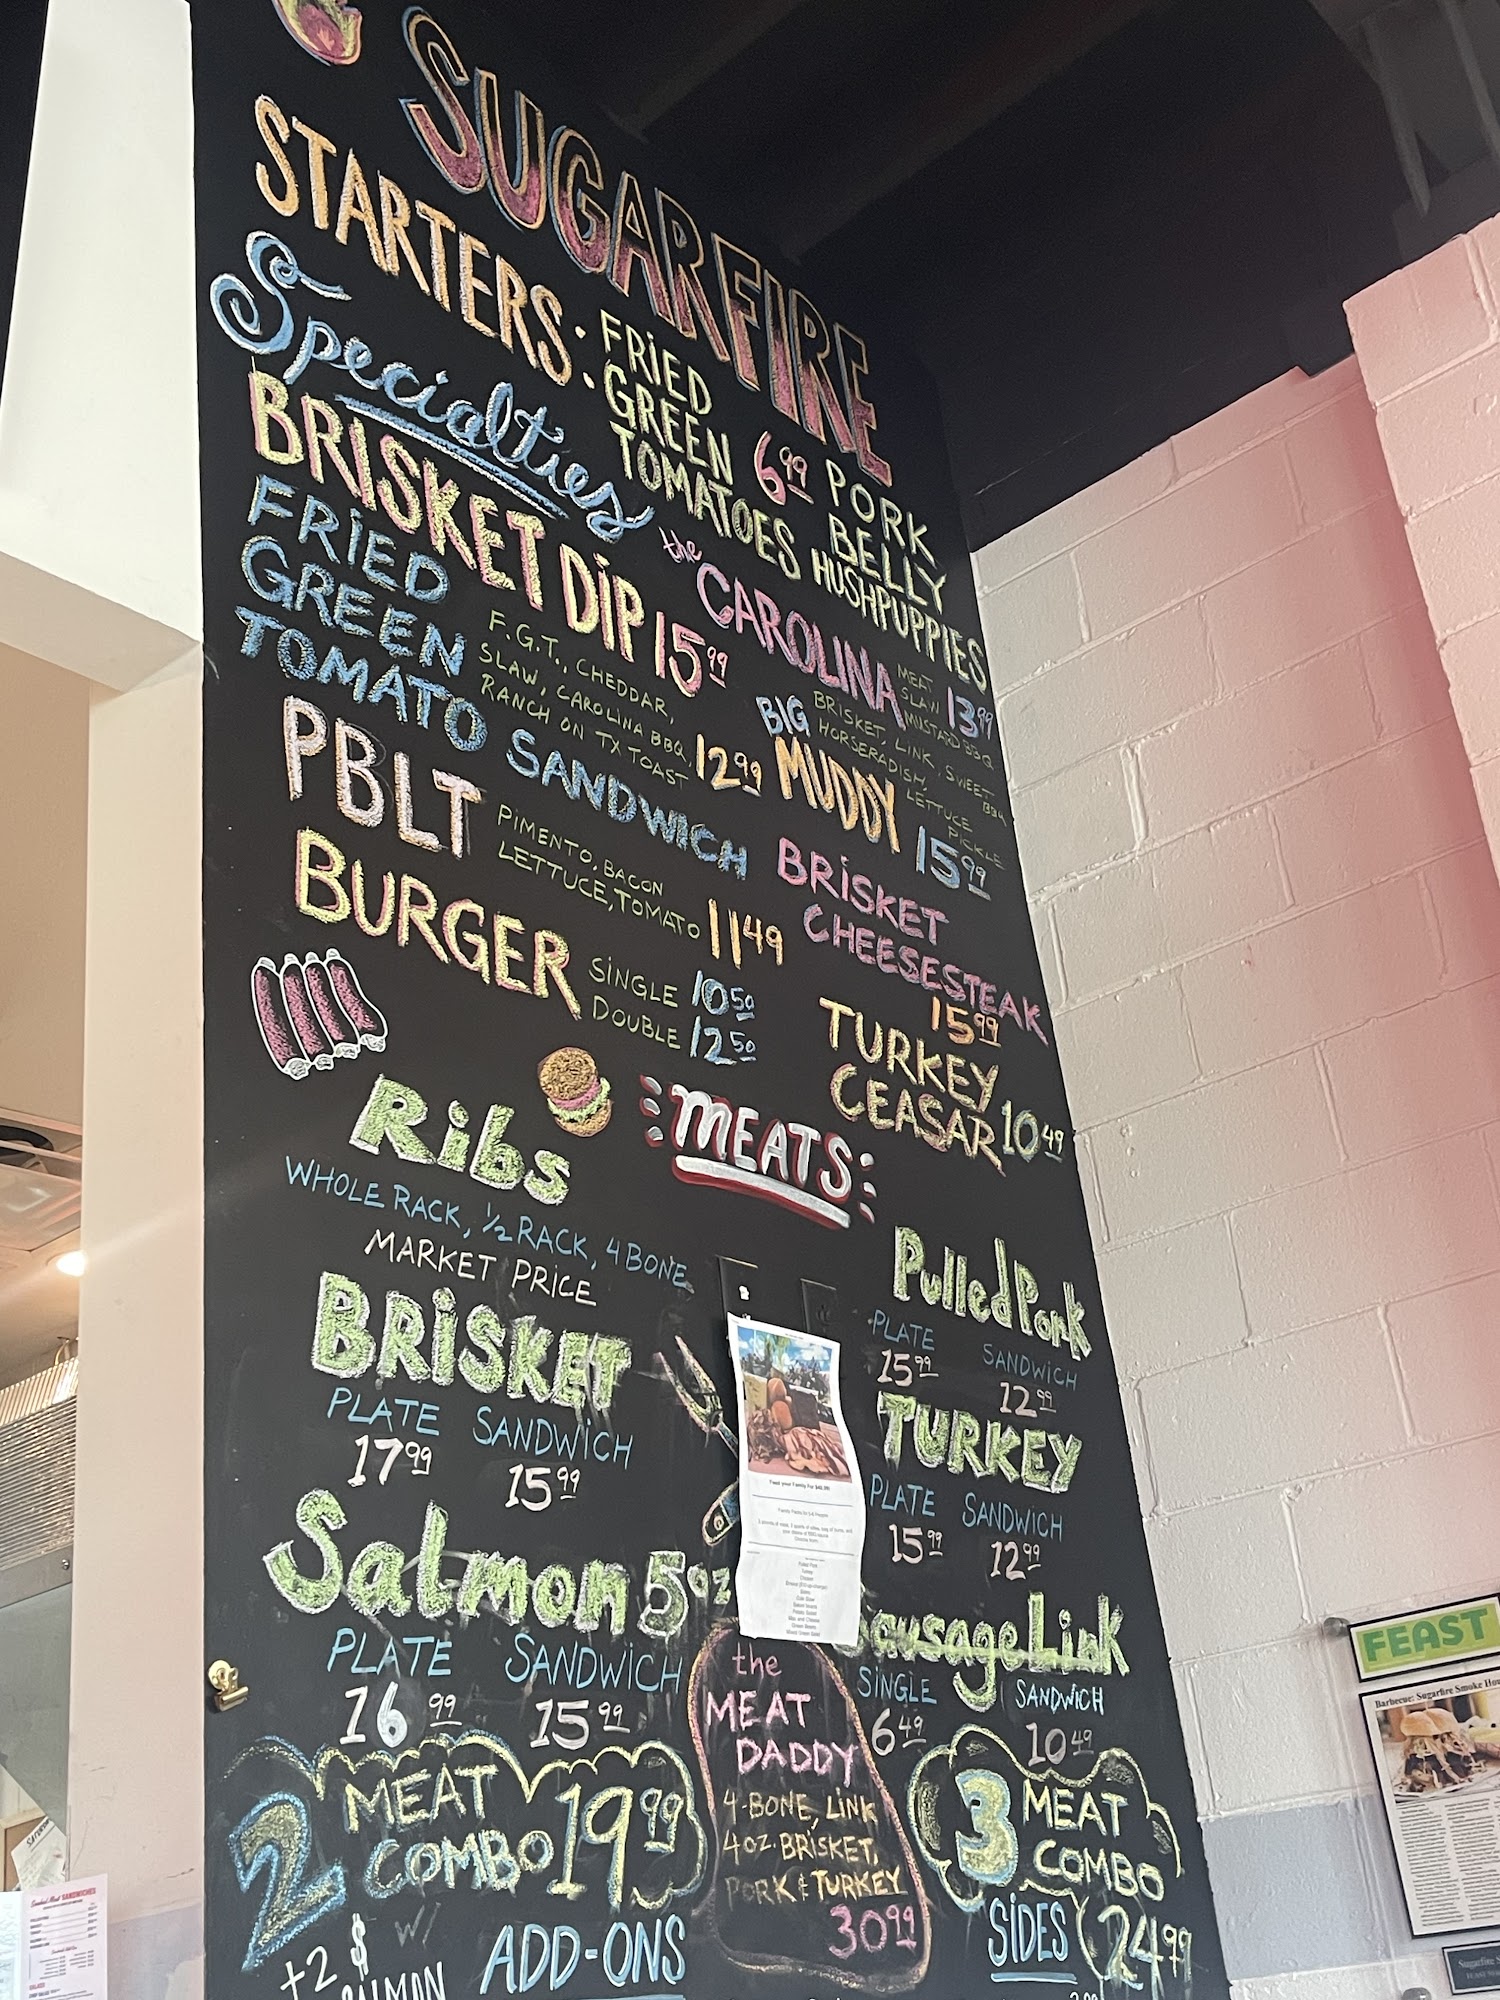 SUGARFIRE
STARTERS:
FRIED
GREEN
TOMATOES
6.99
PORK
BELLY
HUSHPUPPIES
Specialties
BRISKET DIP 15.99
FRIED
GREEN
TOMATO SANDWICH
F.G.T., CHEDDAR,
SLAW, CAROLINA BBQ,
RANCH ON TX TOAST
12.99
PBLT
PIMENTO, BACON
LETTUCE, TOMATO
11.49
BURGER
SINGLE 10.50
DOUBLE 12.50
the
CAROLINA
MEAT
SLAW
MUSTARD BBQ
13.99
BIG
MUDDY
BRISKET, LINK, SWEET BBQ
HORSERADISH,
LETTUCE
PICKLE
15.99
BRISKET
CHEESESTEAK
15.99
TURKEY
CEASAR 10.49
MEATS
Ribs
WHOLE RACK, 1/2 RACK, 4 BONE
MARKET PRICE
BRISKET
PLATE SANDWICH
17.99 15.99
Salmon 5oz
PLATE SANDWICH
16.99 15.99
Pulled Pork
PLATE SANDWICH
15.99 12.99
TURKEY
PLATE SANDWICH
15.99 12.99
Sausage Link
SINGLE SANDWICH
6.49 10.49
Feed your Family For $49.99!
2 MEAT
COMBO 19.99
+2 $ w/
SALMON
ADD-ONS
the
MEAT
DADDY
4-BONE, LINK
4OZ. BRISKET,
PORK & TURKEY
30.99
3 MEAT
COMBO
24.99
SIDES
FEAST
Barbecue: Sugarfire Smoke Hou
Sugarfire S
SANDWICHES